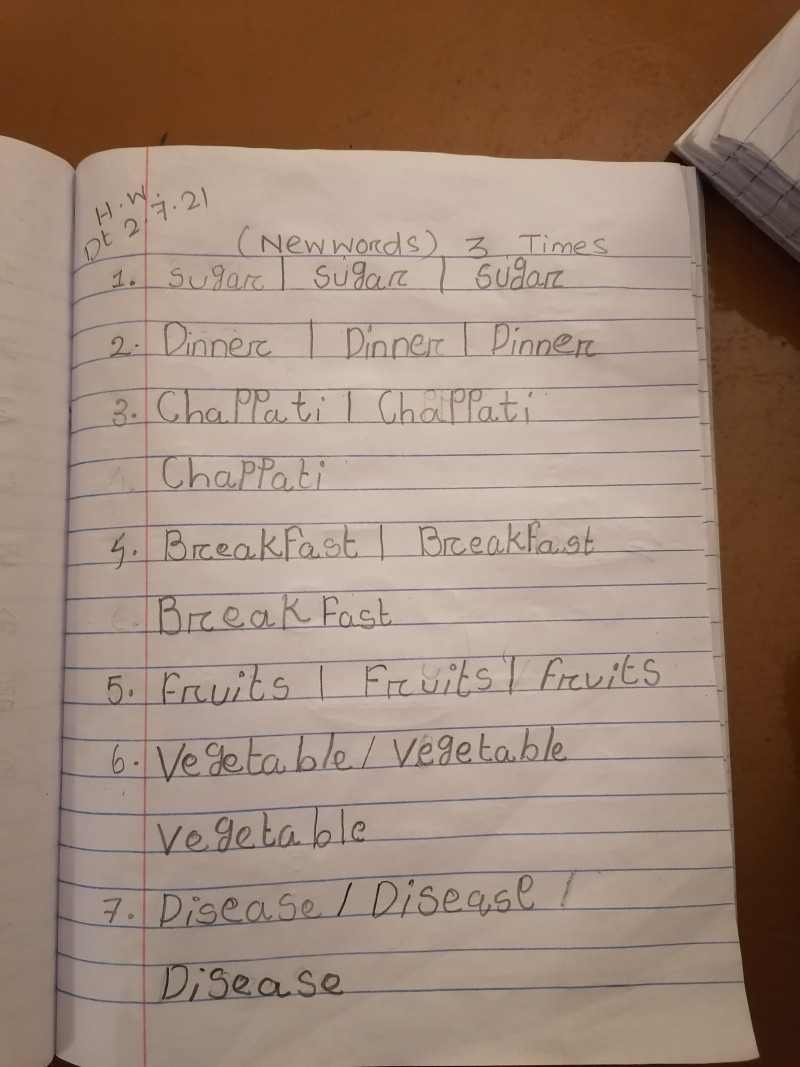 H.W.
Dt 2.7.21
(New words) 3 Times
1. Sugar | Sugar | Sugar
2. Dinner | Dinner | Dinner
3. Chappati | Chappati
Chappati
4. Breakfast | Breakfast
Breakfast
5. Fruits | Fruits | Fruits
6. Vegetable / Vegetable
Vegetable
7. Disease / Disease /
Disease